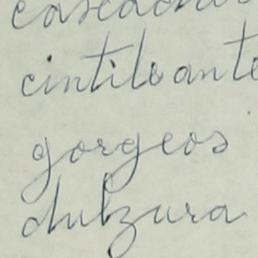 cintiloante
gorgeos
dulzura